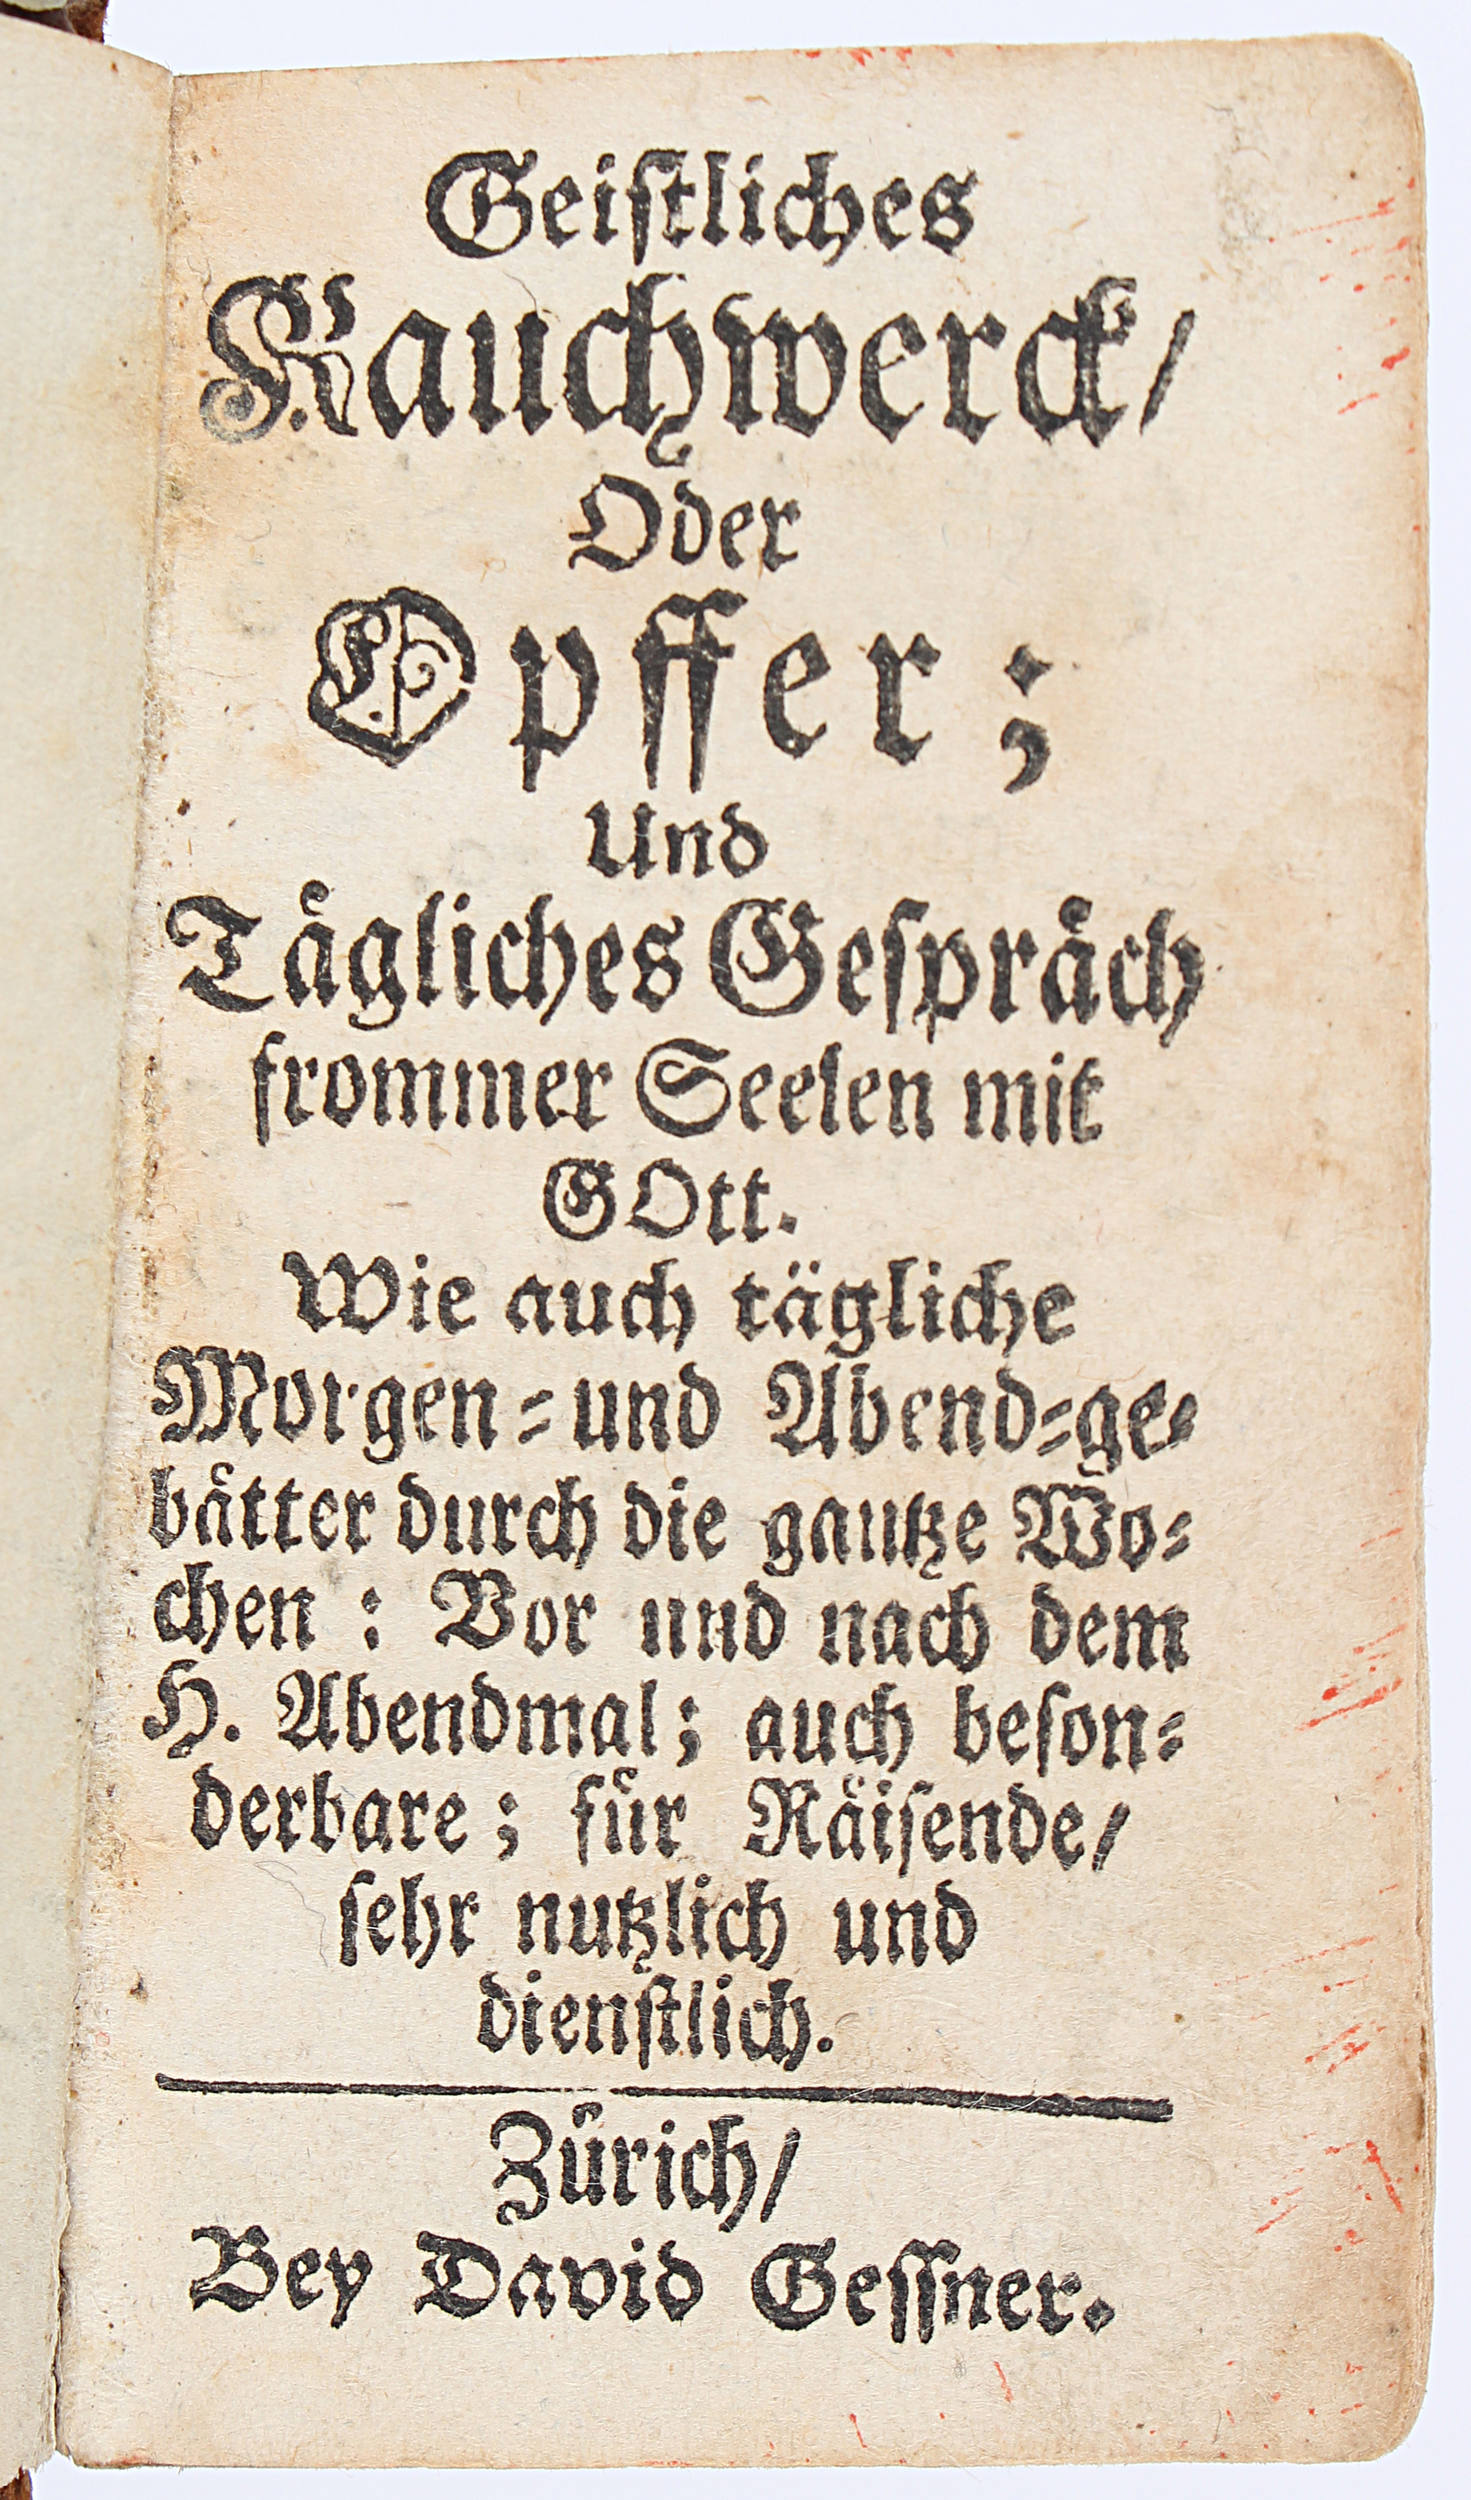 Geiſtliches
Rauchwerck/
Oder
Opffer;
Und
Tägliches Geſpräch
frommer Seelen mit
GOtt.
Wie auch tägliche
Morgen= und Abend=ge=
bätter durch die gautze Wo=
chen : Vor und nach dem
H. Abendmal; auch beſon=
derbare; für Räiſende/
ſehr nutzlich und
dienſtlich.
Zürich/
Bey David Geſſner.